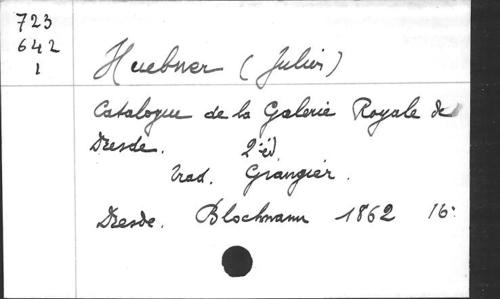 723
642
1
Huebner (Julius)
Catalogue de la Galerie Royale de
Dresde. 2e éd.
trad. Grangier.
Dresde. Blochmann 1862 16°